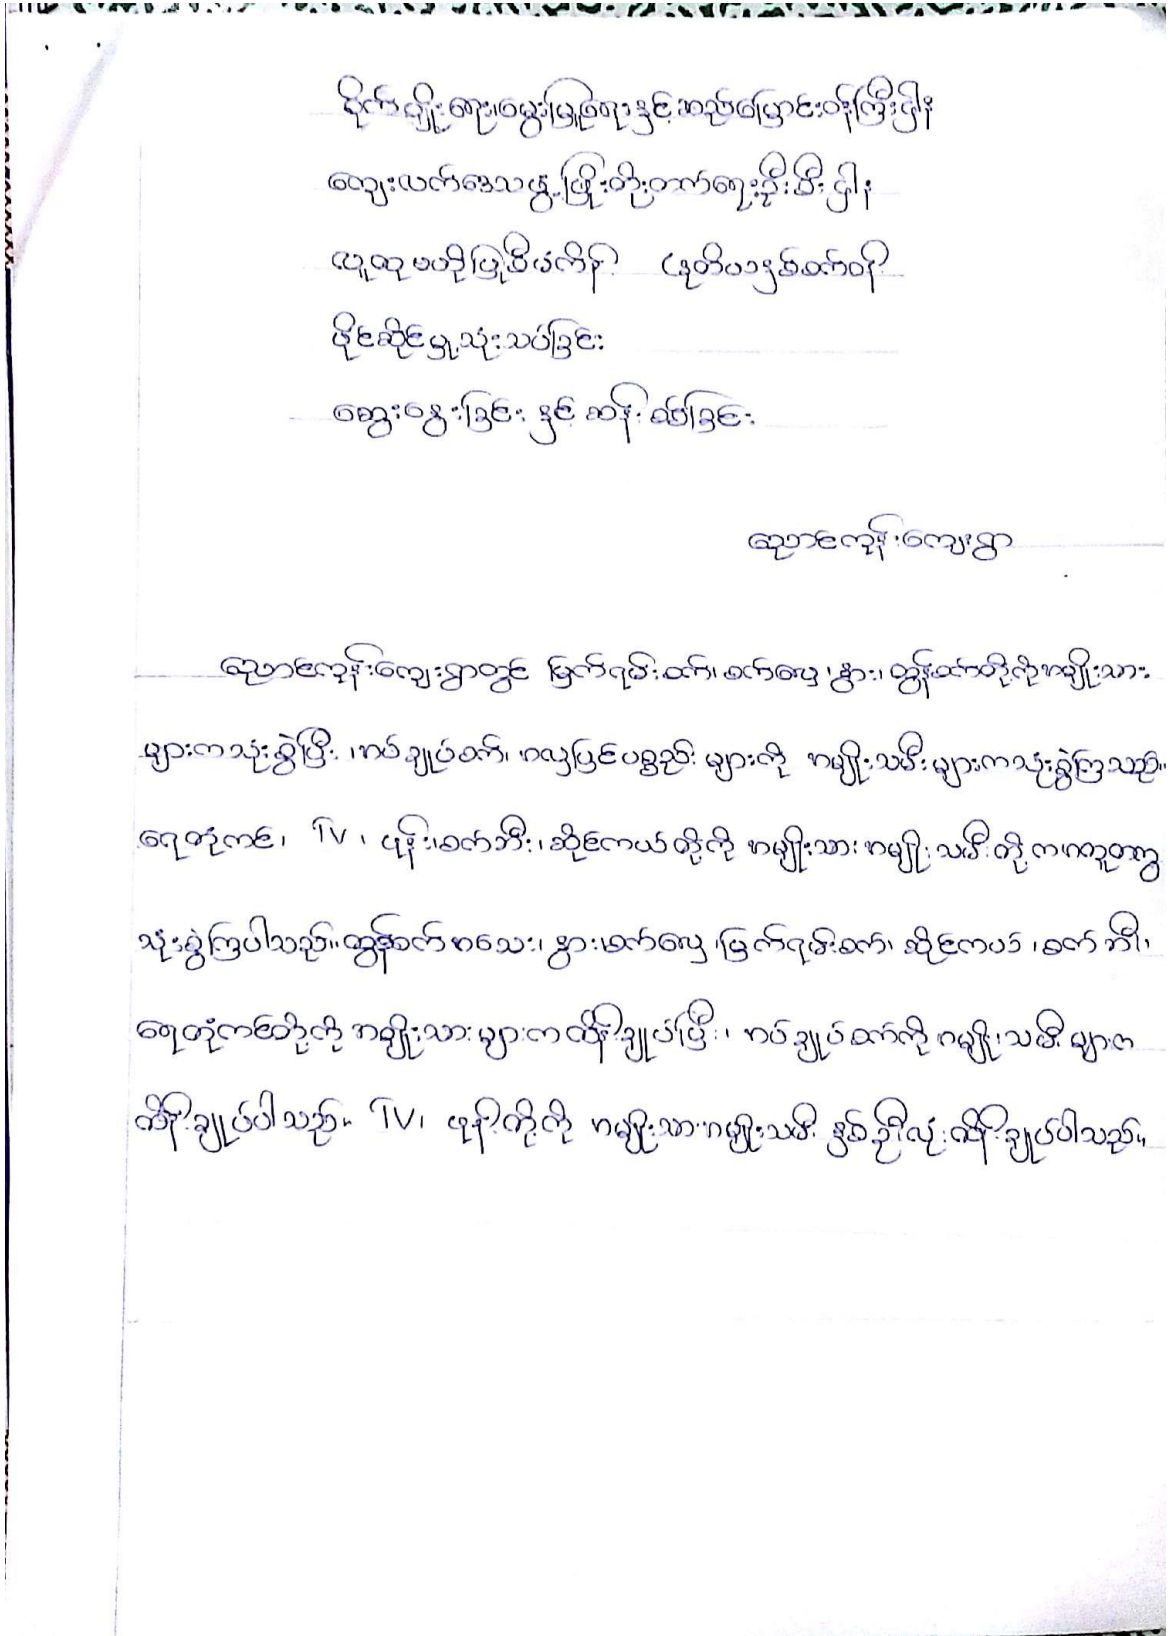 စိုက်ပျိုးရေး၊မွေးမြူရေးနှင့်ဆည်မြောင်းဝန်ကြီးဌာန
ကျေးလက်ဒေသဖွံ့ဖြိုးတိုးတက်ရေးဦးစီးဌာန
လူထုဗဟိုပြုစီမံကိန်း (ဒုတိယသုံးနှစ်စက်ဝန်း
ပိုင်ဆိုင်မှု့သုံးသပ်ခြင်း
ဆွေးနွေးခြင်းနှင့်ဆန်းစစ်ခြင်း
ညောင်ကုန်းကျေးရွာ
ညောင်ကုန်းကျေးရွာတွင် မြက်ရမ်းစက်၊ စက်လှေ၊ နွား၊ ထွန်စက်တို့ကိုအမျိုးသား
များကသုံးစွဲပြီး၊ အပ်ချုပ်စက်၊ အလှပြင်ပစ္စည်းများကို အမျိုးသမီးများကသုံးစွဲကြသည်။
ရေတုံကင်၊ TV ၊ ဖုန်း၊စက်ဘီး၊ ဆိုင်ကယ်တို့ကို အမျိုးသားအမျိုးသမီးတို့ကအတူတကွ
သုံးစွဲကြပါသည်။ ထွန်စက်အသေး၊ နွား၊စက်လှေ၊ မြက်ရမ်းစက်၊ ဆိုင်ကယ်၊ စက်ဘီး၊
ရေတုံကင်တို့ကို အမျိုးသားများကထိန်းချုပ်ပြီး၊ အပ်ချုပ်စက်ကို အမျိုးသမီးများက
ထိန်းချုပ်ပါသည်။ TV၊ ဖုန်းတို့ကို အမျိုးသားအမျိုးသမီး နှစ်ဦးလုံးထိန်းချုပ်ပါသည်။